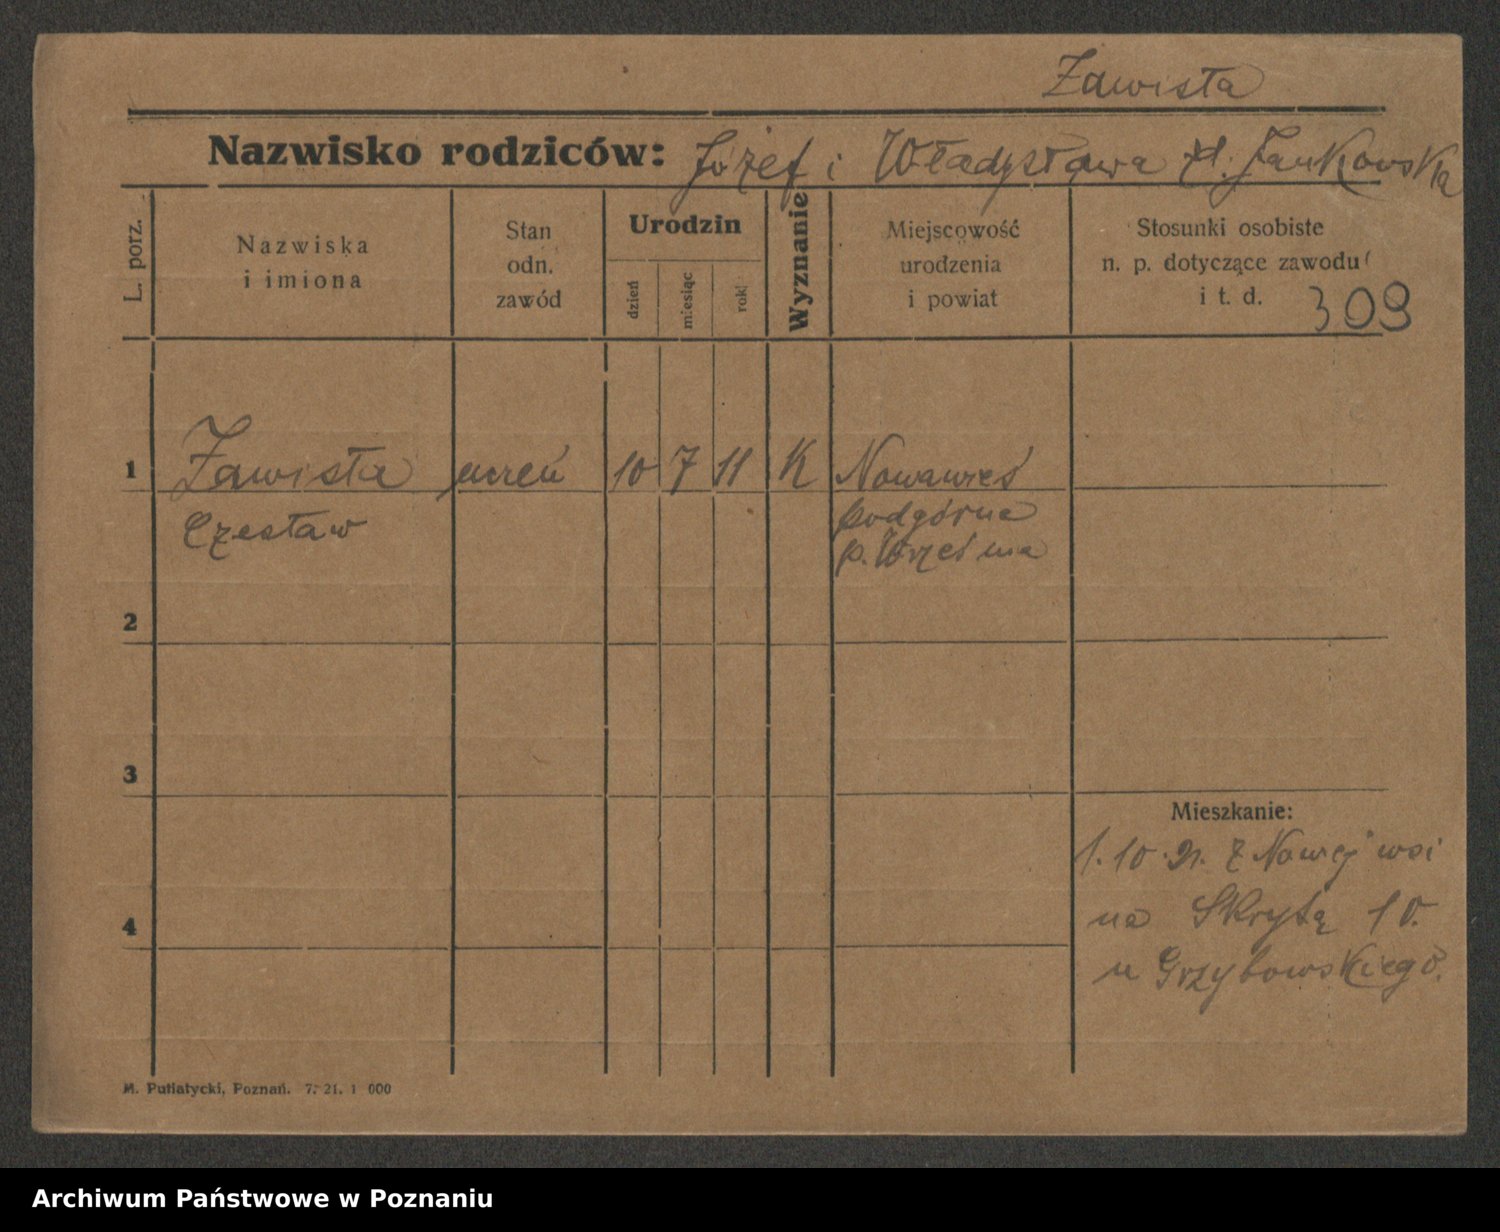 Zawista
Nazwisko rodziców: Józef i Władysława Jankowska
L. porz.
Nazwiska
i imiona
Stan
odn.
zawód
Urodzin
dzień
miesiąc
rok
Wyznanie
Miejscowość
urodzenia
i powiat
Stosunki osobiste
n. p. dotyczące zawodu
i t. d.
309
1 Zawista uczeń 10 7 11 K Nowawieś
Czesław podgórna
p. Września
2
3
Mieszkanie:
1.10.21. z Nowej wsi
na Skrytą 10.
4
u Grzybowskiego.
M. Putiatycki, Poznań. 7. 21. 1 000
Archiwum Państwowe w Poznaniu